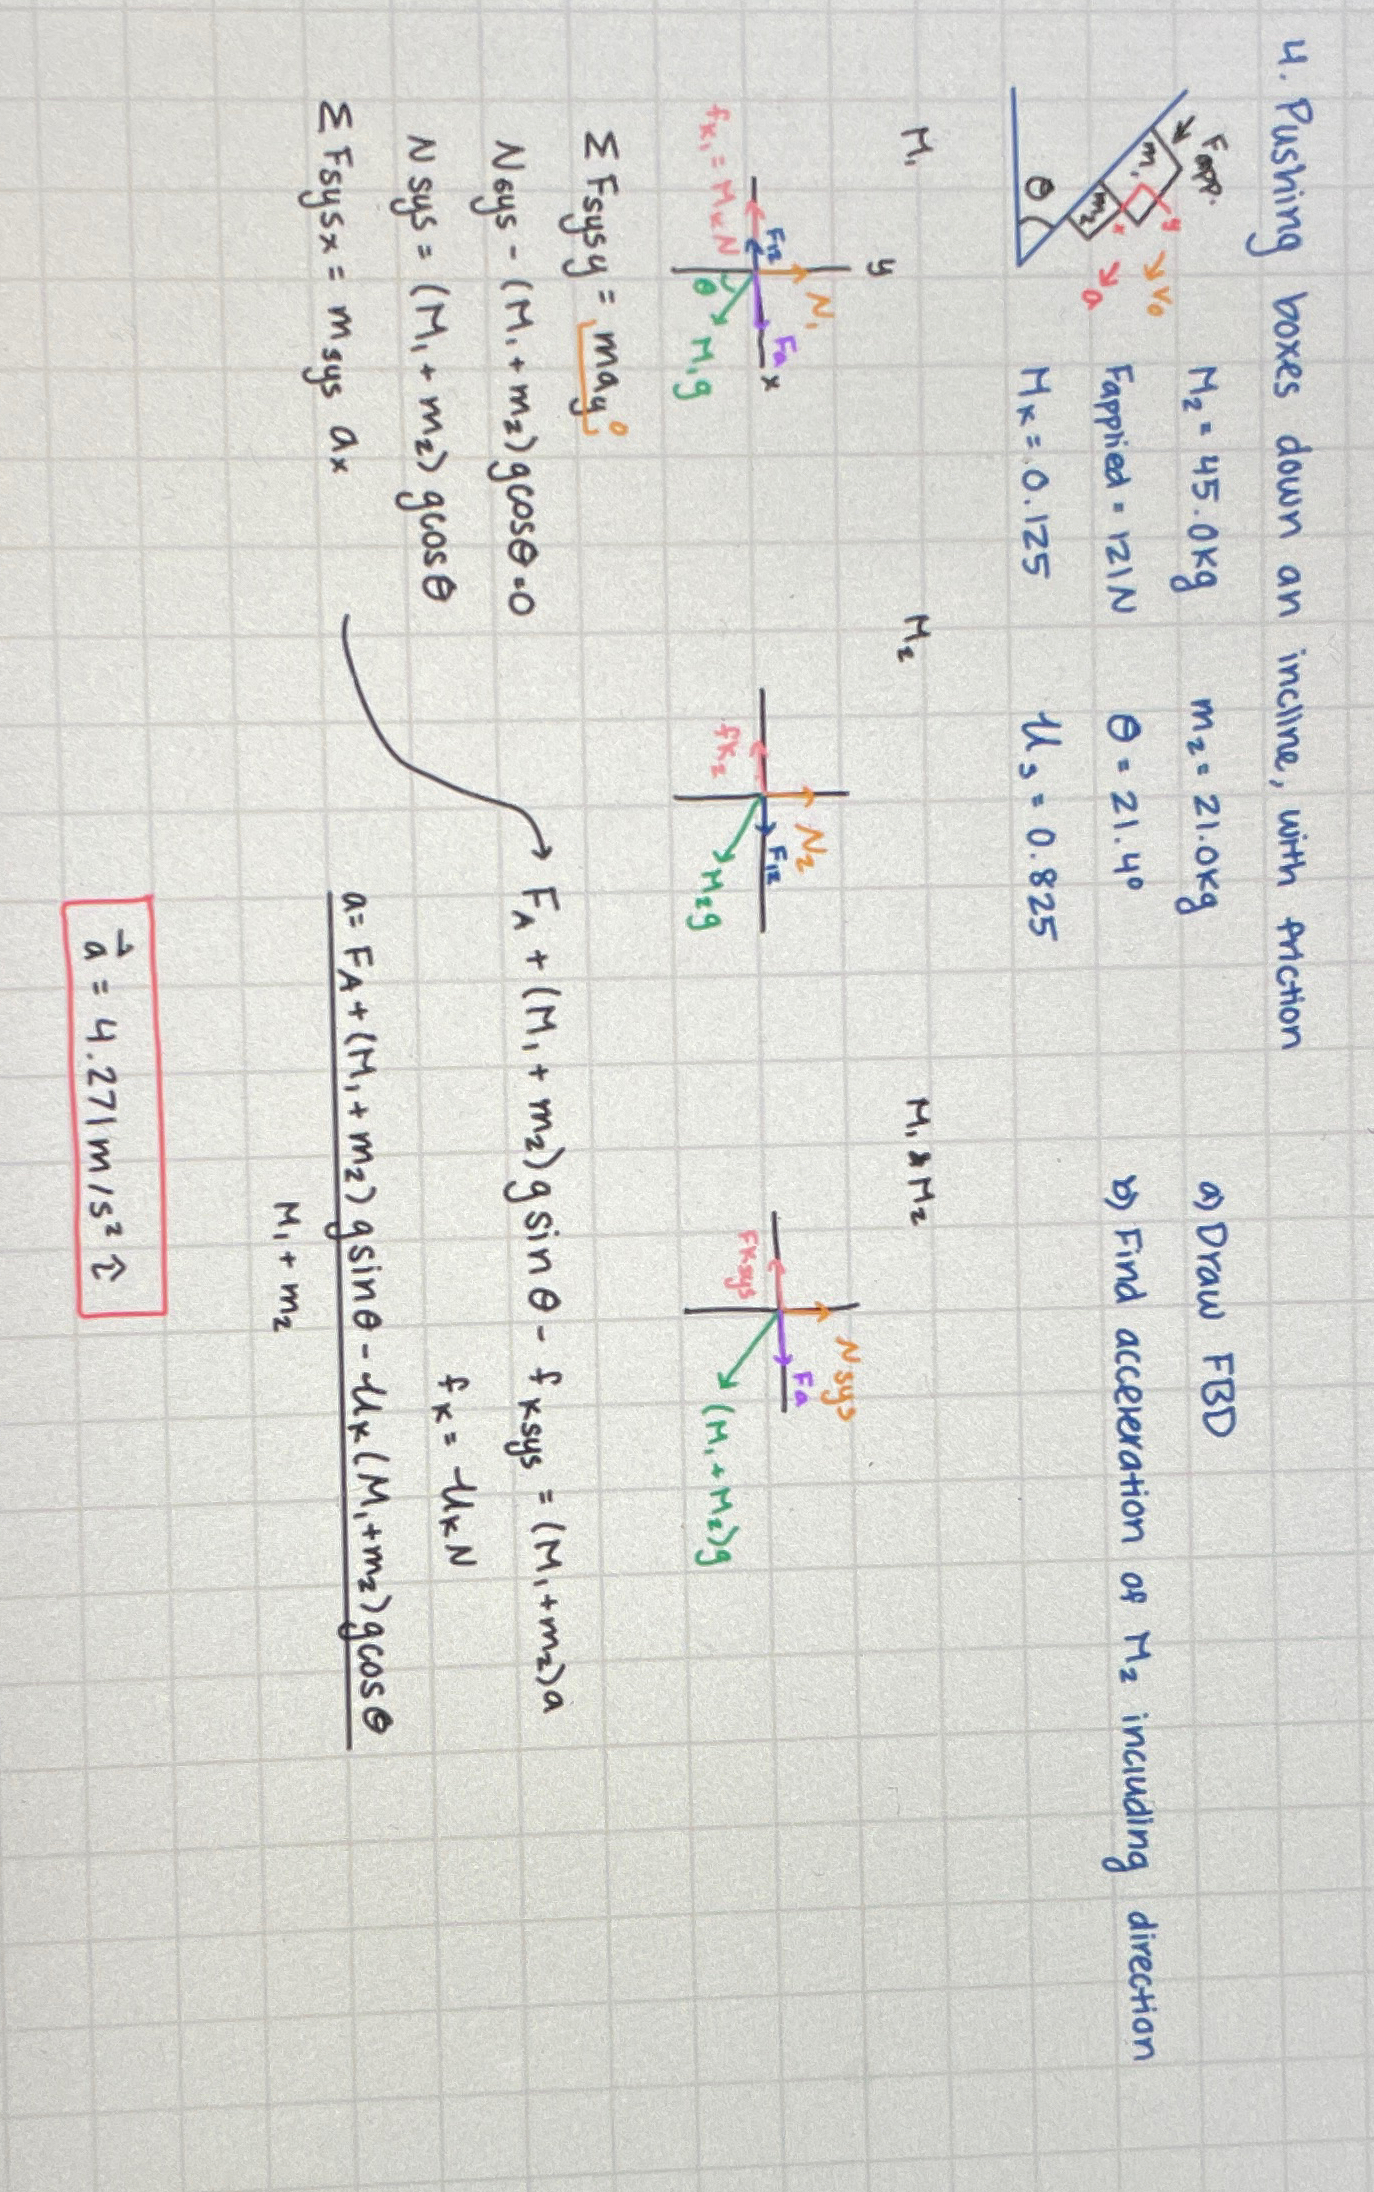 4. Pushing boxes down an incline, with friction
Fapp.
m1
m2
y
x
V0
a
θ
M2 = 45.0kg m2 = 21.0kg
Fapplied = 121N θ = 21.4°
Mk = 0.125 μs = 0.825
a) Draw FBD
b) Find acceleration of M2 including direction
M1
y
N1
F12
Fa
x
fk1 = MkN
θ
M1g
M2
N2
F12
fk2
M2g
M1 & M2
Nsys
Fa
Fksys
(M1 + M2)g
ΣFsysy = may 0
Nsys - (M1 + m2)gcosθ = 0
Nsys = (M1 + m2) gcosθ
ΣFsysx = msys ax
FA + (M1 + m2)g sinθ - fksys = (M1 + m2)a
fk = μkN
a = FA + (M1 + m2) gsinθ - μk(M1 + m2)gcosθ
M1 + m2
a = 4.271 m/s² î